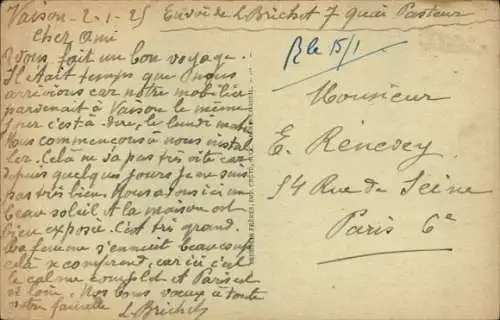 Vaison - 2-1-25 Envoi de L Brichet 7 quai Pasteur
Cher Ami
Avons fait un bon voyage.
Il était temps que nous
arrivions car notre mobilier
parvenait à Vaison le même
jour c'est-à-dire, le lundi matin
Nous commençons à nous instal
ler. Celà ne va pas très vite car
depuis quelques jours je ne suis
pas très bien. Nous avons ici un
beau soleil et la maison est
bien exposée. C'est très grand.
Ma femme s'ennuit beaucoup
celà se comprend, car ici c'est
le calme complet et Paris est
si loin. Nos bons vœux à toute
votre famille L Brichet
R le 15/1
Monsieur
E. Rencsey
54 Rue de Seine
Paris 6e